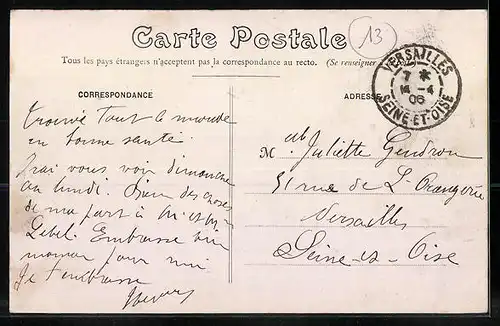 Carte Postale
13
Tous les pays étrangers n'acceptent pas la correspondance au recto. (Se renseigner
CORRESPONDANCE
ADRESSE
VERSAILLES
7 *
4
06
SEINE-ET-OISE
trouvé tout le monde
en bonne santé
J'rai vous voir dimanche
ou lundi. Bien des choses
de ma part à M. et Mme
Lebel. Embrasse bien
maman pour moi
Je t'embrasse
Melle Juliette Gendron
51 rue de L'Orangerie
Versailles
Seine-et-Oise